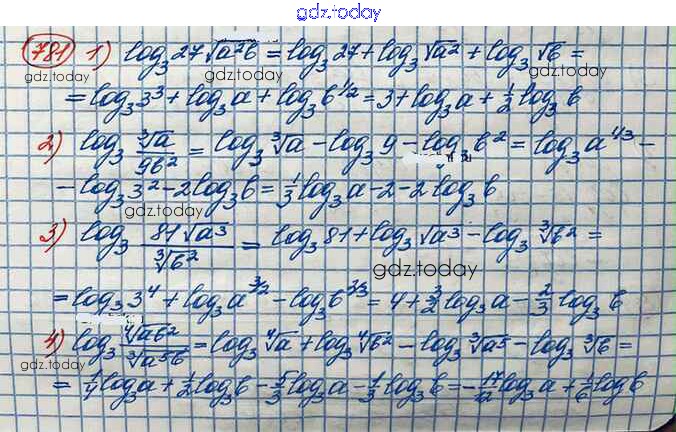 gdz.today
781 1) log₃27√a²b = log₃27 + log₃√a² + log₃√b =
gdz.today gdz.today
= log₃3³ + log₃a + log₃b^1/2 = 3 + log₃a + 1/2 log₃b
2) log₃ ∛a/9b² = log₃∛a - log₃9 - log₃b² = log₃a^1/3 -
- log₃3² - 2log₃b = 1/3 log₃a - 2 - 2log₃b
gdz.today
3) log₃ 81√a³/∛b² = log₃81 + log₃√a³ - log₃∛b² =
gdz.today gdz.today
= log₃3⁴ + log₃a^3/2 - log₃b^2/3 = 4 + 3/2 log₃a - 2/3 log₃b
4) log₃ ∜ab²/∛a⁵b = log₃∜a + log₃∜b² - log₃∛a⁵ - log₃∛b =
gdz.today gdz.today
= 1/4 log₃a + 1/2 log₃b - 5/3 log₃a - 1/3 log₃b = -17/12 log₃a + 1/6 log b